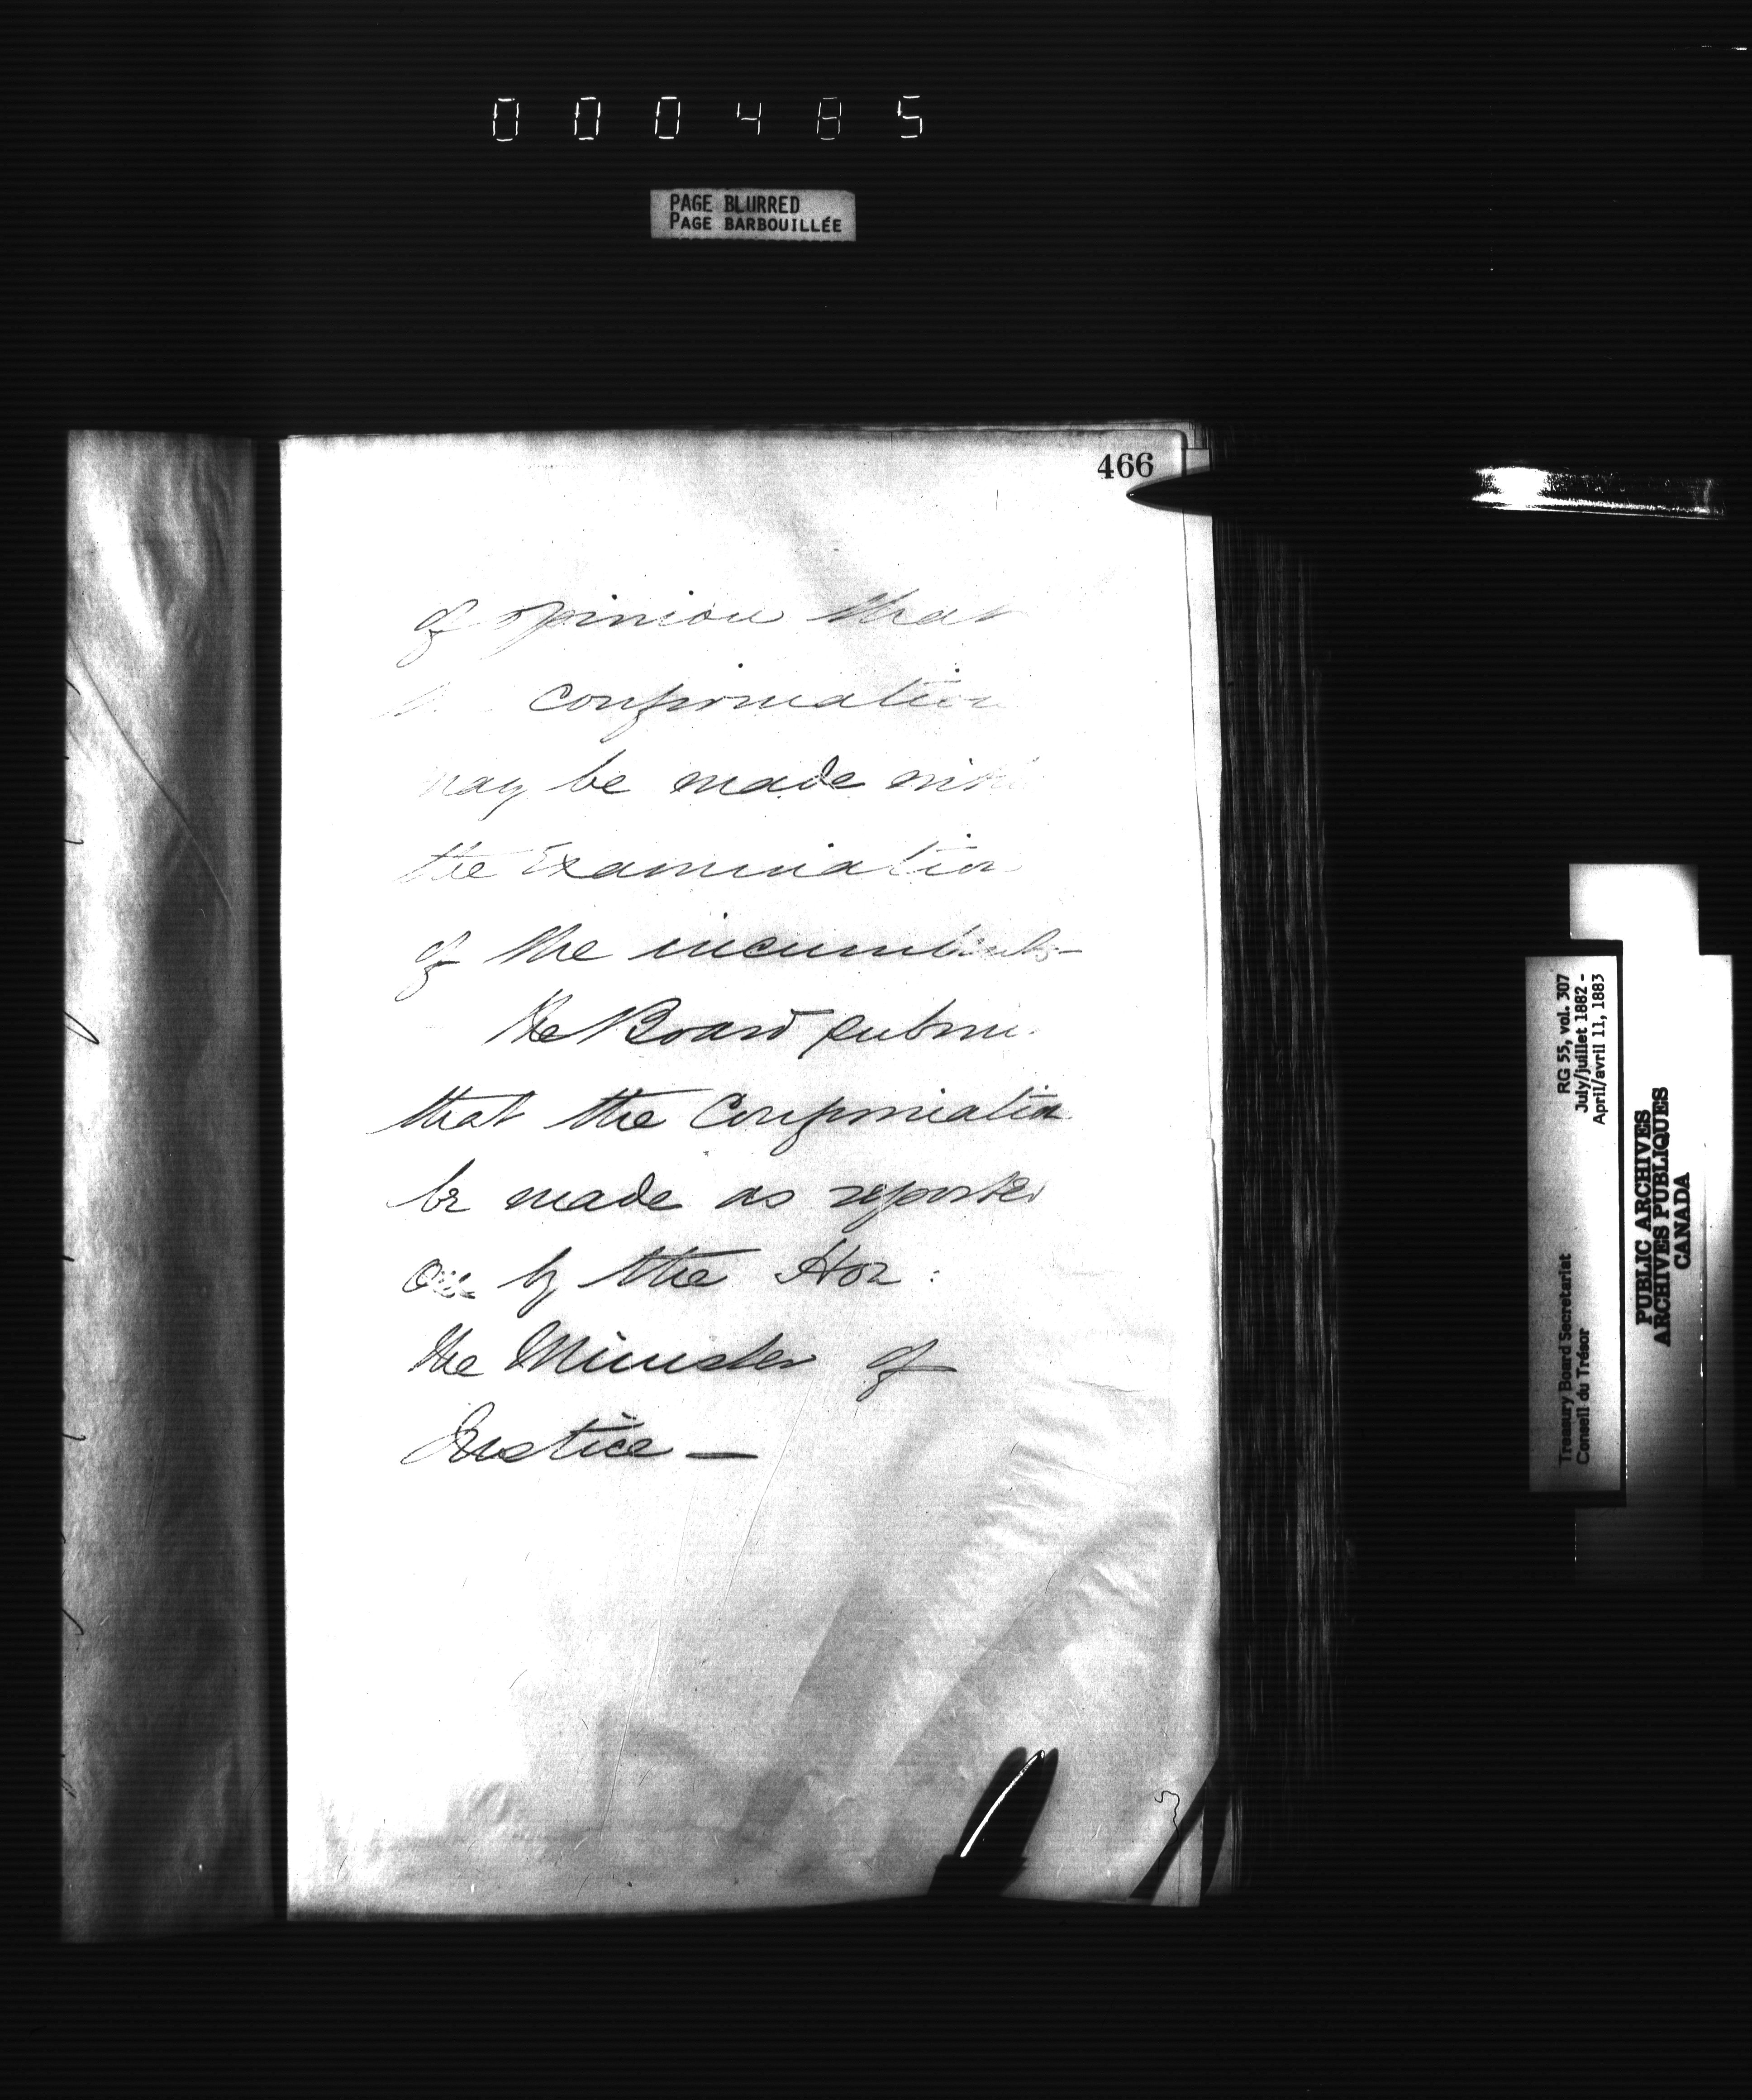 000485
PAGE BLURRED
PAGE BARBOUILLÉE
466
of opinion that
confirmation
may be made
the Examination
of the incumbents—
The Board submi
that the Confirmation
be made as reported
on by the Hon:
the Minister of
Justice —
RG 55, vol. 307
July/juillet 1882 -
April/avril 11, 1883
Treasury Board Secretariat
Conseil du Trésor
PUBLIC ARCHIVES
ARCHIVES PUBLIQUES
CANADA